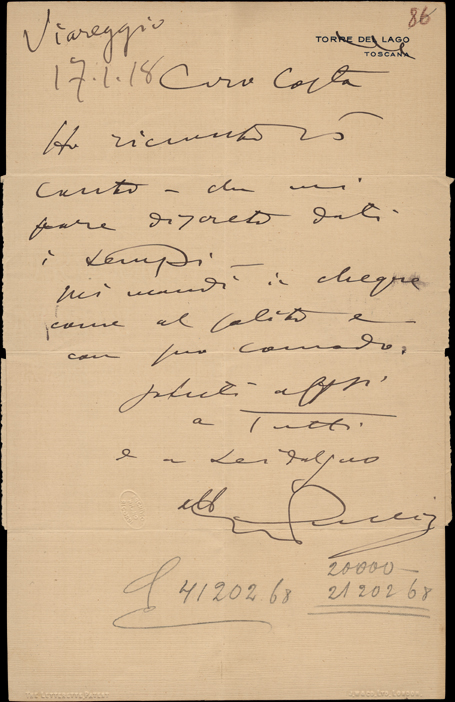 86
Viareggio
TORRE DEL LAGO
TOSCANA
17.1.18 Caro Costa
Ho ricevuto
conto – che mi
pare discreto dati
i tempi –
mi mandi lo cheque
come al solito e
con suo comodo.
saluti affti
a Tutti
e a Lei
Puccini
41202 68
20000 –
21202 68